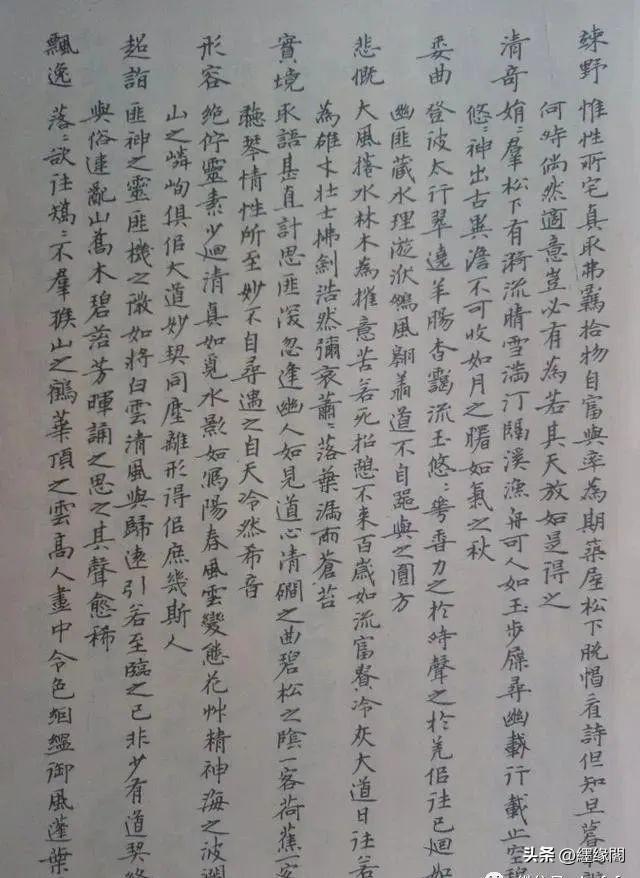 疎野 惟性所宅真取弗羈拾物自富與率為期築屋松下脫帽看詩但知旦暮
何時倘然適意豈必有為若其天放如是得之
清奇 娟〻羣松下有漪流晴雪滿汀隔溪漁舟可人如玉步屧尋幽載行載止空碧
悠〻神出古異澹不可收如月之曙如氣之秋
委曲 登彼太行翠遶羊腸杳靄流玉悠〻花香力之於時聲之於羌佀往已迴如
幽匪藏水理漩洑鵬風翱翔道不自器與之圓方
悲慨 大風捲水林木為摧意苦若死招憩不來百歲如流富貴冷灰大道日往若
為雄才壯士拂劍浩然彌哀蕭〻落葉漏雨蒼苔
實境 取語甚直計思匪深忽逢幽人如見道心清磵之曲碧松之陰一客荷蕉一客
聽琴情性所至妙不自尋遇之自天冷然希音
形容 絕佇靈素少迴清真如覓水影如寫陽春風雲變態花艸精神海之波瀾
山之嶙峋俱佀大道妙契同塵離形得佀庶幾斯人
超詣 匪神之靈匪機之微如將白雲清風與歸遠引若至臨之已非少有道契終
與俗違亂山喬木碧苔芳暉誦之思之其聲愈稀
飄逸 落〻欲往矯〻不羣緱山之鶴華頂之雲高人畫中令色絪縕御風蓬葉
头条 @經缘閣